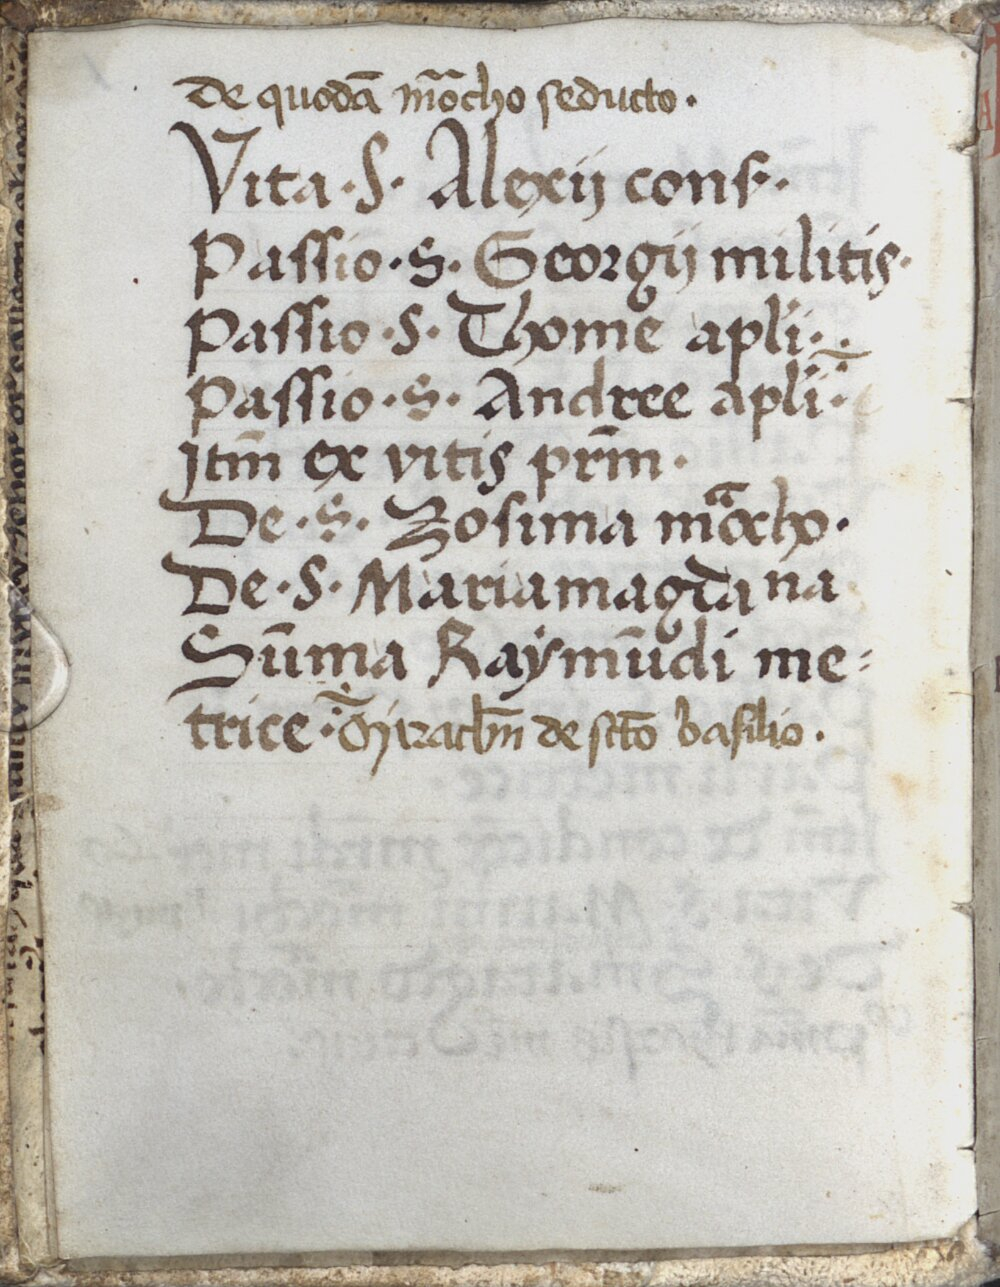 De quodā mͣocho seducto.
Vita · S · Alexij conf. ·
Passio · S · Georgij militis ·
Passio · S · Thome apli · .
Passio · S · Andree apli ·
Itm̄ ex vitis prm̄ ·
De · S · Zosima mͣocho ·
De · S · Mariamagda na
Sūma Raymūdi me-
trice · de sctō basilio .